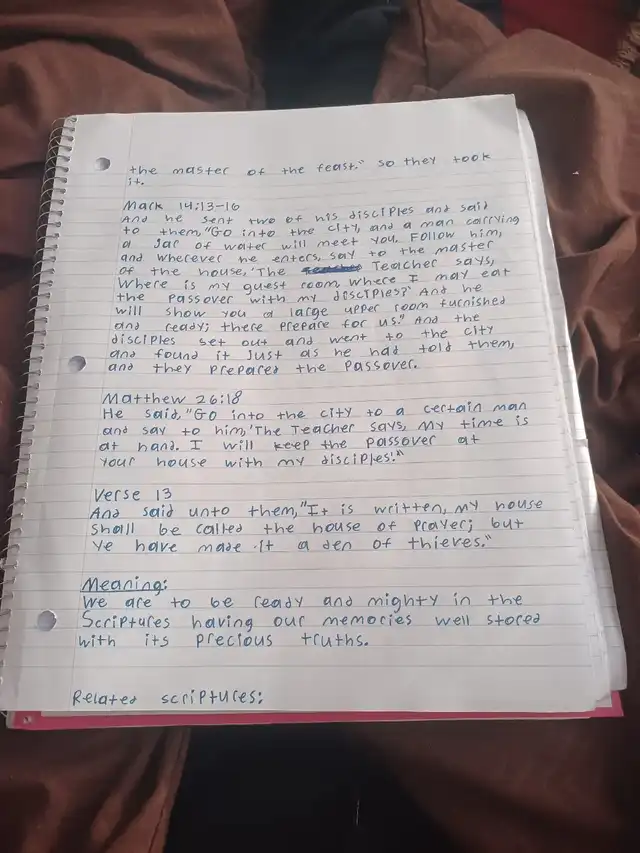 the master of the feast." so they took
it.
Mark 14:13-16
And he sent two of his disciples and said
to them, "Go into the city, and a man carrying
a jar of water will meet you. Follow him,
and wherever he enters, say to the master
of the house, 'The Teacher says,
Where is my guest room, where I may eat
the Passover with my disciples?' And he
will show you a large upper room furnished
and ready; there prepare for us." And the
disciples set out and went to the city
and found it just as he had told them,
and they prepared the Passover.
Matthew 26:18
He said, "Go into the city to a certain man
and say to him, 'The Teacher says, My time is
at hand. I will keep the Passover at
your house with my disciples.'"
Verse 13
And said unto them, "It is written, my house
shall be called the house of prayer; but
ye have made it a den of thieves."
Meaning:
We are to be ready and mighty in the
Scriptures having our memories well stored
with its precious truths.
Related scriptures: